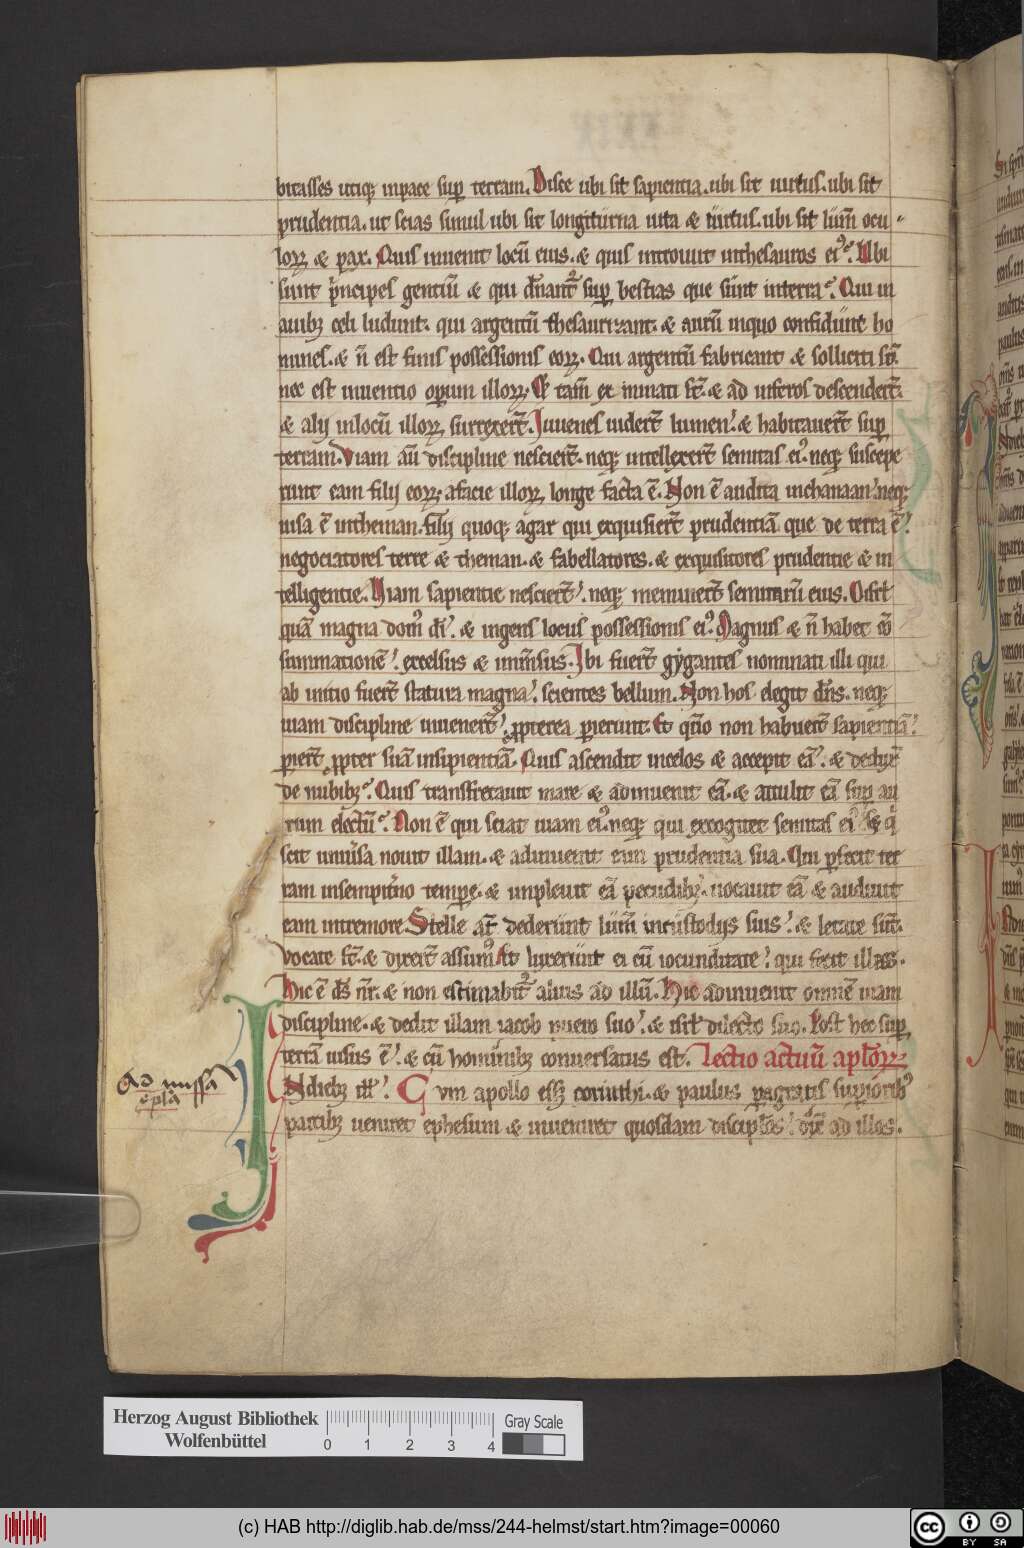 bitasses utiq; inpace sup terram. Disce ubi sit sapientia. ubi sit uirtus. ubi sit
prudentia. ut scias simul ubi sit longiturna uita & uictus. ubi sit lum̄ ocu
loꝝ & pax. Quis inuenit locū eius. & quis introiuit inthesauros ei⁹. Ubi
sunt p̄ncipes gentiū & qui dn̄ant͛ sup bestias que sunt interra. Qui in
auibꝫ celi ludunt. qui argentū thesaurizant. & aurū inquo confidunt ho
mines. & n̄ est finis possessionis eoꝝ. Qui argentū fabricant & solliciti st̄.
nec est inuentio opum illoꝝ. Ex minati st̄. & ad inferos descendert̄.
& alij inlocū illoꝝ surrexert̄. Iuuenes uidert̄ lumen. & habitauert̄ sup
terram. Viam aū discipline nesciert̄. neq; intellexert̄ semitas ei⁹. neq; suscepe
runt eam filij eoꝝ. afacie illoꝝ longe facta ē. Non ē audita inchanaan. neq;
uisa ē intheman. filij quoq; agar qui exquisiert̄ prudentiā que de terra ē.
negociatores terre & theman. & fabellatores. & exquisitores prudentie & in
telligentie. Viam sapientie nesciert̄. neq; meminert̄ semitarū eius. O isrl̄
quā magna dom⁹ dī. & ingens locus possessionis ei⁹. Magnus & n̄ habet cō
summationē. excelsus & inm̄sus. Ibi fuert̄ gygantes nominati illi qui
ab initio fuert̄ statura magna. scientes bellum. Non hos elegit dn̄s. neq;
uiam discipline inuenert̄. ꝓpterea perierunt. Et qm̄o non habuert̄ sapientiā.
periert̄ ꝓpter suā insipientiā. Quis ascendit incelos & accepit eā. & eduxit
de nubibꝫ. Quis transfretauit mare & adinuenit eā. & attulit eā sup au
rum electū. Non ē qui sciat uiam ei⁹. neq; qui excogitet semitas ei⁹. S; q
scit uniu͛sa nouit illam. & adinuenit eam prudentia sua. Qui pfecit ter
ram insempit͛no tempe. & impleuit eā pecudibꝫ. uocauit eā & audiuit
eam intremore. Stelle aū dederunt lum̄ incustodijs suis. & letate sunt.
vocate st̄. & dixert̄ assum⁹. Et luxerunt ei cū iocunditate. qui fecit illas.
Hic ē ds̄ nr̄. & non estimabit͛ alius ad illū. Hic adinuenit omnē uiam
discipline. & dedit illam iacob puero suo. & isrl̄ dilecto suo. Post hec sup
terrā uisus ē. & cū hominibꝫ conuersatus est. Lectio actuū apl̄oꝝ.
Ad missā
ep̄la
IN diebꝫ ill̄. Cum apollo ess; corinthi. & paulus pagratis supioribꝫ
partibꝫ ueniret ephesum & inueniret quosdam discipl̄os. ad illos.
Herzog August Bibliothek
Wolfenbüttel
0 1 2 3 4
Gray Scale
(c) HAB http://diglib.hab.de/mss/244-helmst/start.htm?image=00060
cc BY SA